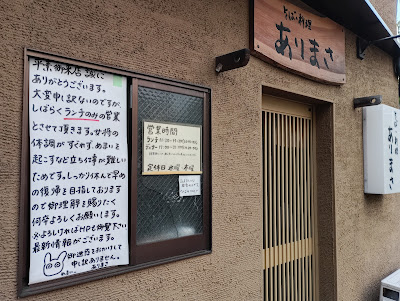 そば・料理
ありまさ
平素御来店誠に
ありがとうございます。
大変申し訳ないのですが、
しばらくランチのみの営業
とさせて頂きます。女将の
体調がすぐれず、めまいを
起こすなど立ち仕事が難しい
ためです。しっかり休んで早め
の復帰を目指しております
ので御理解を賜りたく
何卒よろしくお願いします。
※よろしければHPも御覧下さい
最新情報がございます。
御迷惑をおかけして
申し訳ありません。
ありまさ
営業時間
ランチ
ディナー
定休日
ありまさ